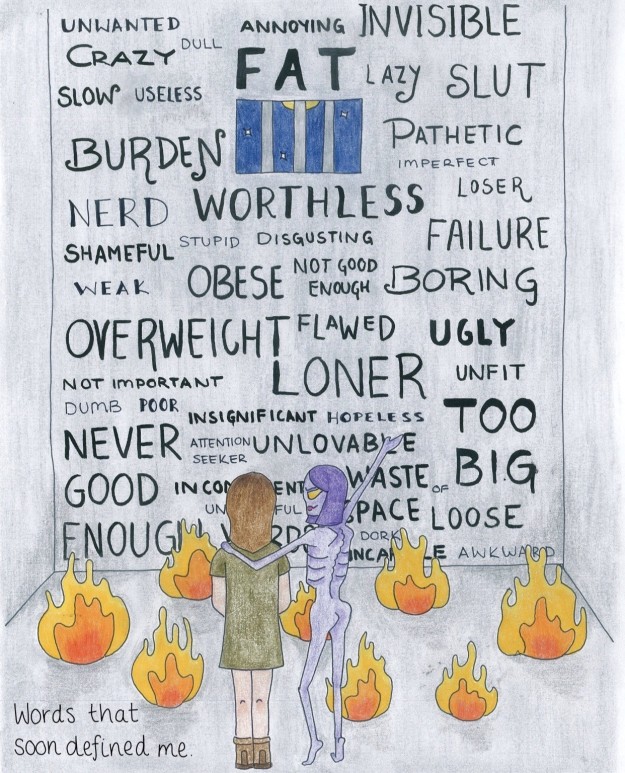 UNWANTED ANNOYING INVISIBLE
CRAZY DULL
FAT LAZY SLUT
SLOW USELESS
BURDEN PATHETIC
IMPERFECT
LOSER
NERD WORTHLESS
FAILURE
SHAMEFUL STUPID DISGUSTING
WEAK OBESE NOT GOOD
ENOUGH BORING
OVERWEIGHT FLAWED UGLY
LONER UNFIT
NOT IMPORTANT
DUMB POOR
INSIGNIFICANT HOPELESS TOO
NEVER ATTENTION
SEEKER UNLOVABLE
BIG
GOOD WASTE OF
SPACE LOOSE
ENOUGH DORK
AWKWARD
Words that
soon defined me.